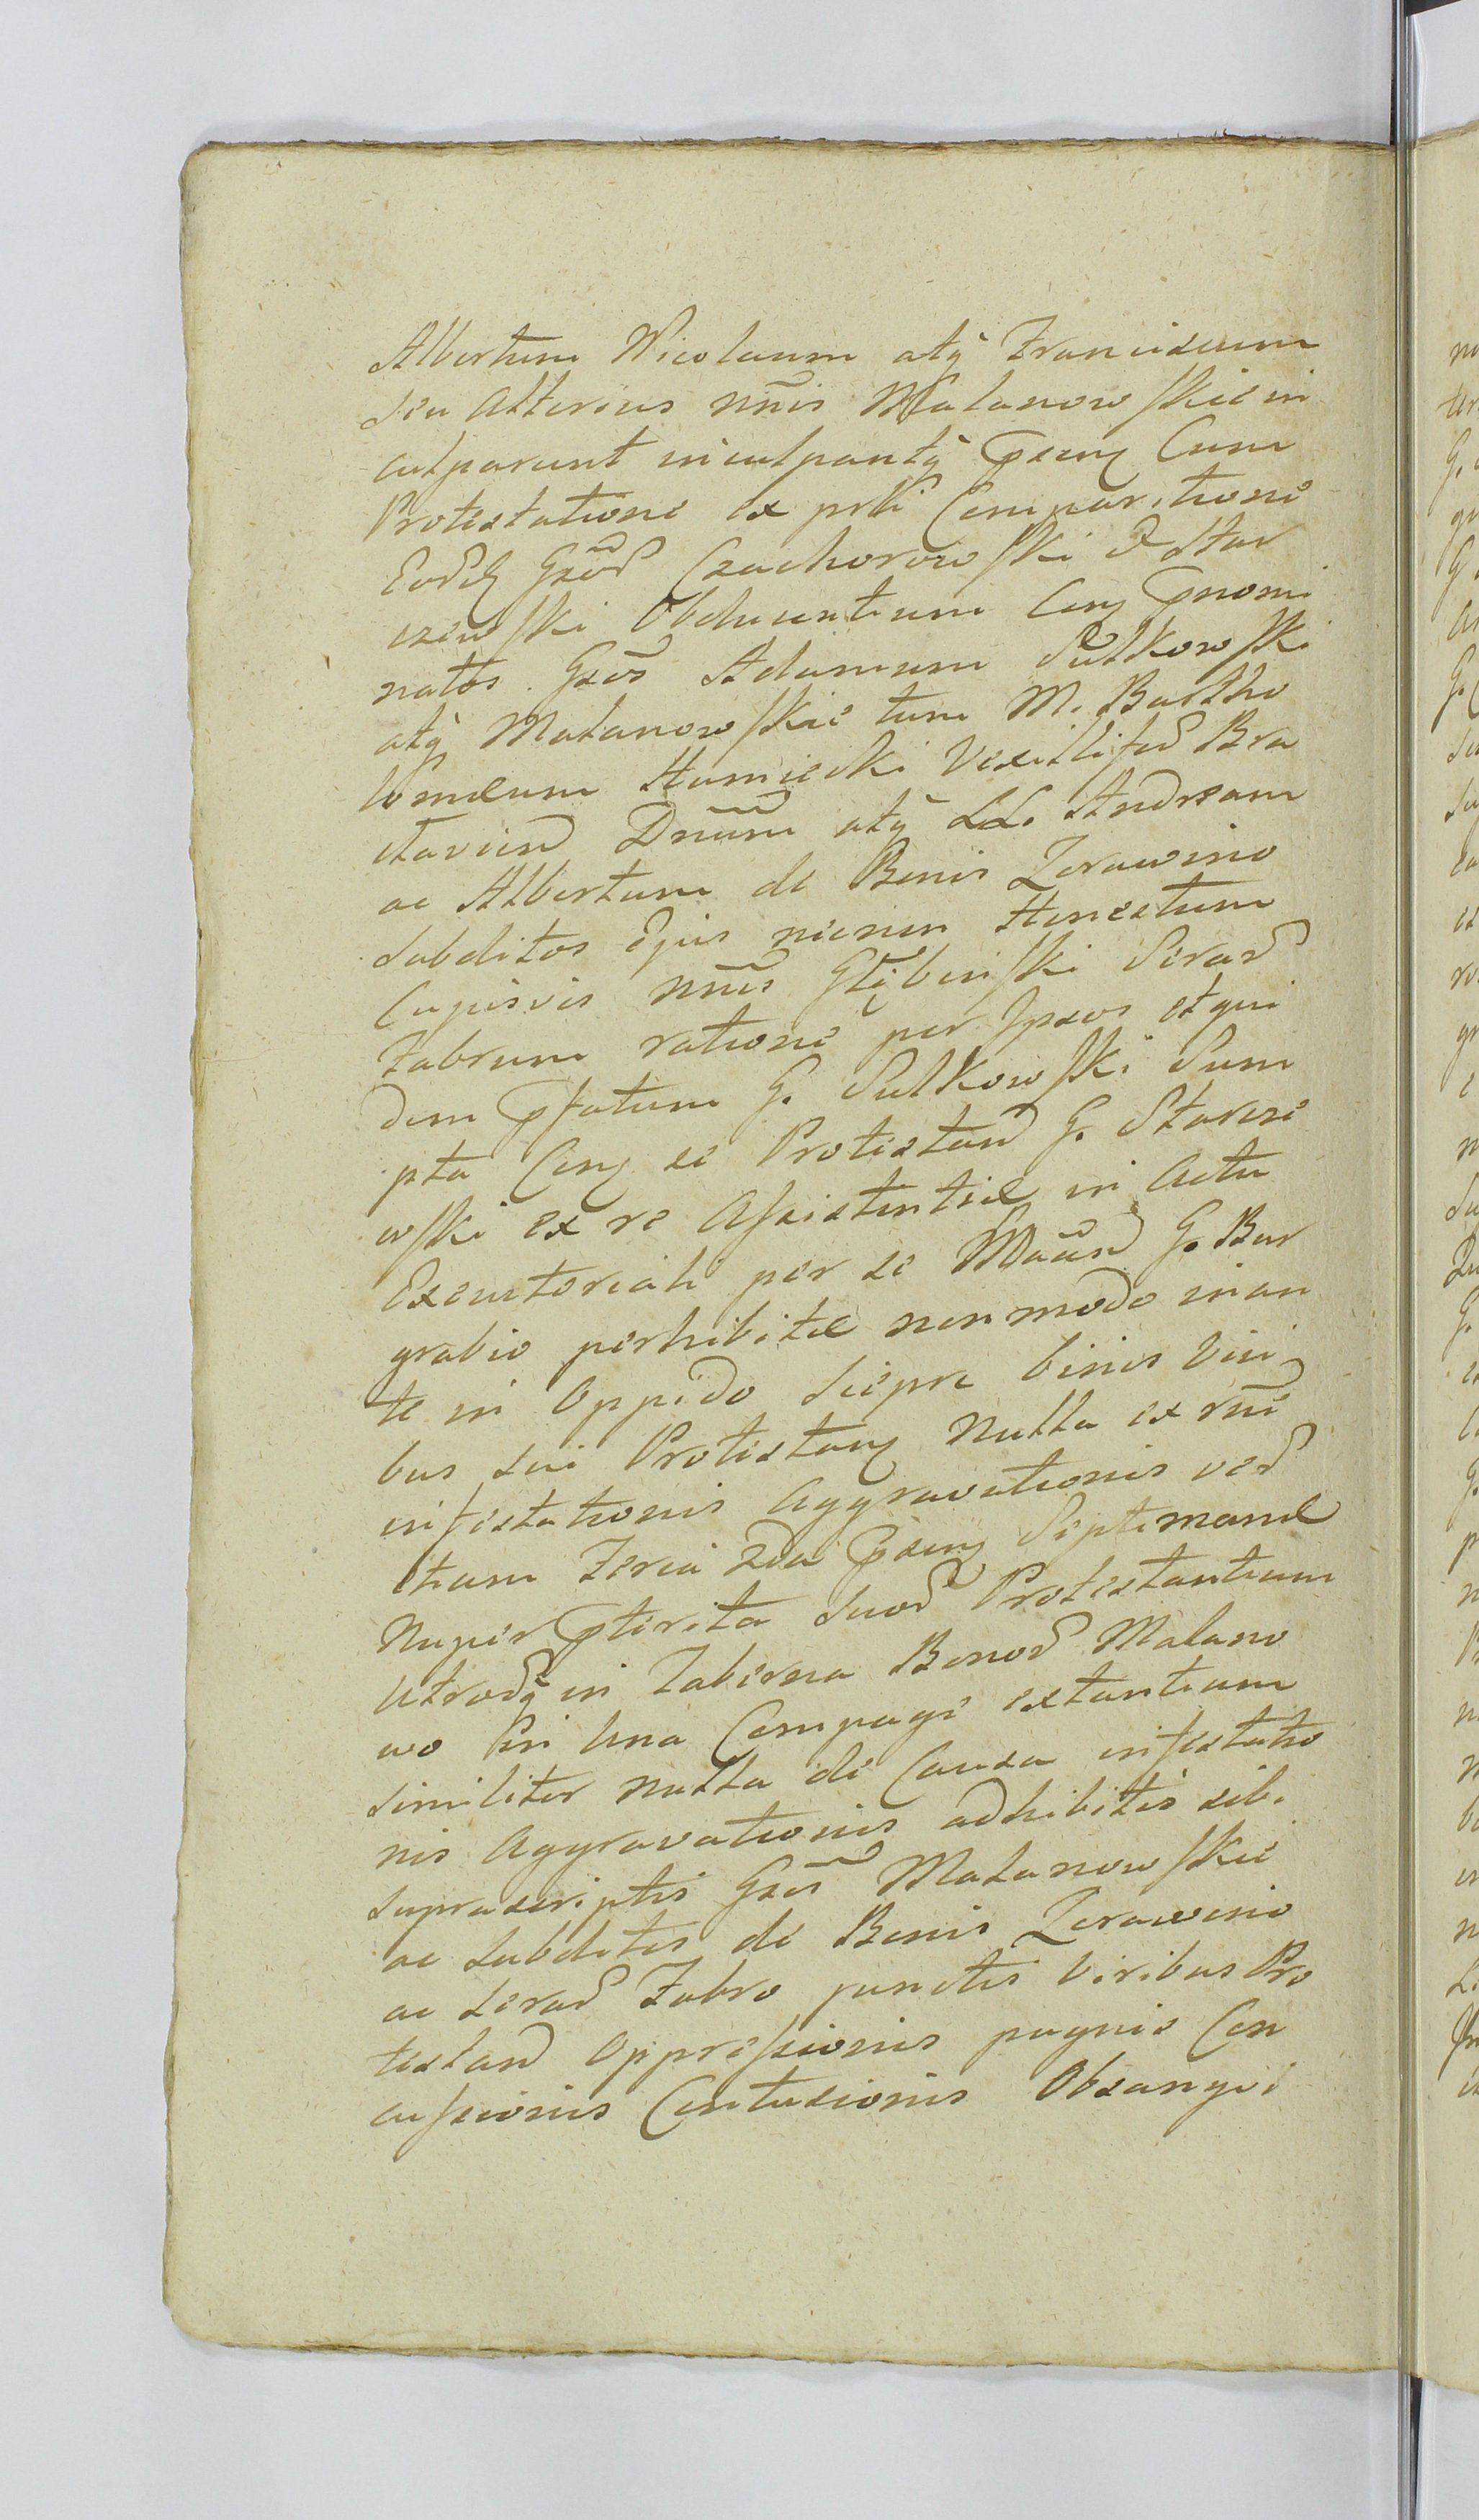 Albertum Nicolaum atq̀ Franciscum
seu Alterius nñis Malanowskie in
culparunt inculpantq̀ Gseng Cum
Protestatione ex prti Comparitione
Eord Gsõr Czachorowski & Star
czewski Obducentium Cong Gnomi
natos Gsõs Adamum Sułkowski
atq̀ Malanowskie tum M. Bartho
lomæum Humiecki Vexillifer Bra
clavien Dnum atq̀ LL. Andream
ac Albertum de Bonis Zorawino
Subditos Ejus necnon Honestum
Cujusvis nñis Głębinski Serar
Fabrum ratione per Ipsos et qui
dem Gfatum G. Sułkowski Sum
pta Cong se Protestan G. Starcze
wski ex re Assistentiæ in Actu
Executoriali per se Maan G. Bur
grabio perhibitæ non modo in an
te in Oppido Siepre binis Vici
bus sui Protestang Nulla ex rnẽ
infestationis Aggravationis ver
etiam Feria 2da Gseng Septimanæ
Nuper Gterita Suor Protestantium
Utrorq̀ in Taberna Bonor Malano
wo Una Compage extantium
similiter nulla de Causa infestatio
nis Aggravationis adhibitis sibi
suprascriptis Gsis Malanowskie
ac Subditis de Bonis Zorawino
ac Serar Fabro junctis Viribus Pro
testan Oppressionis pugnis Con
cussionis Contusionis Obsangvi